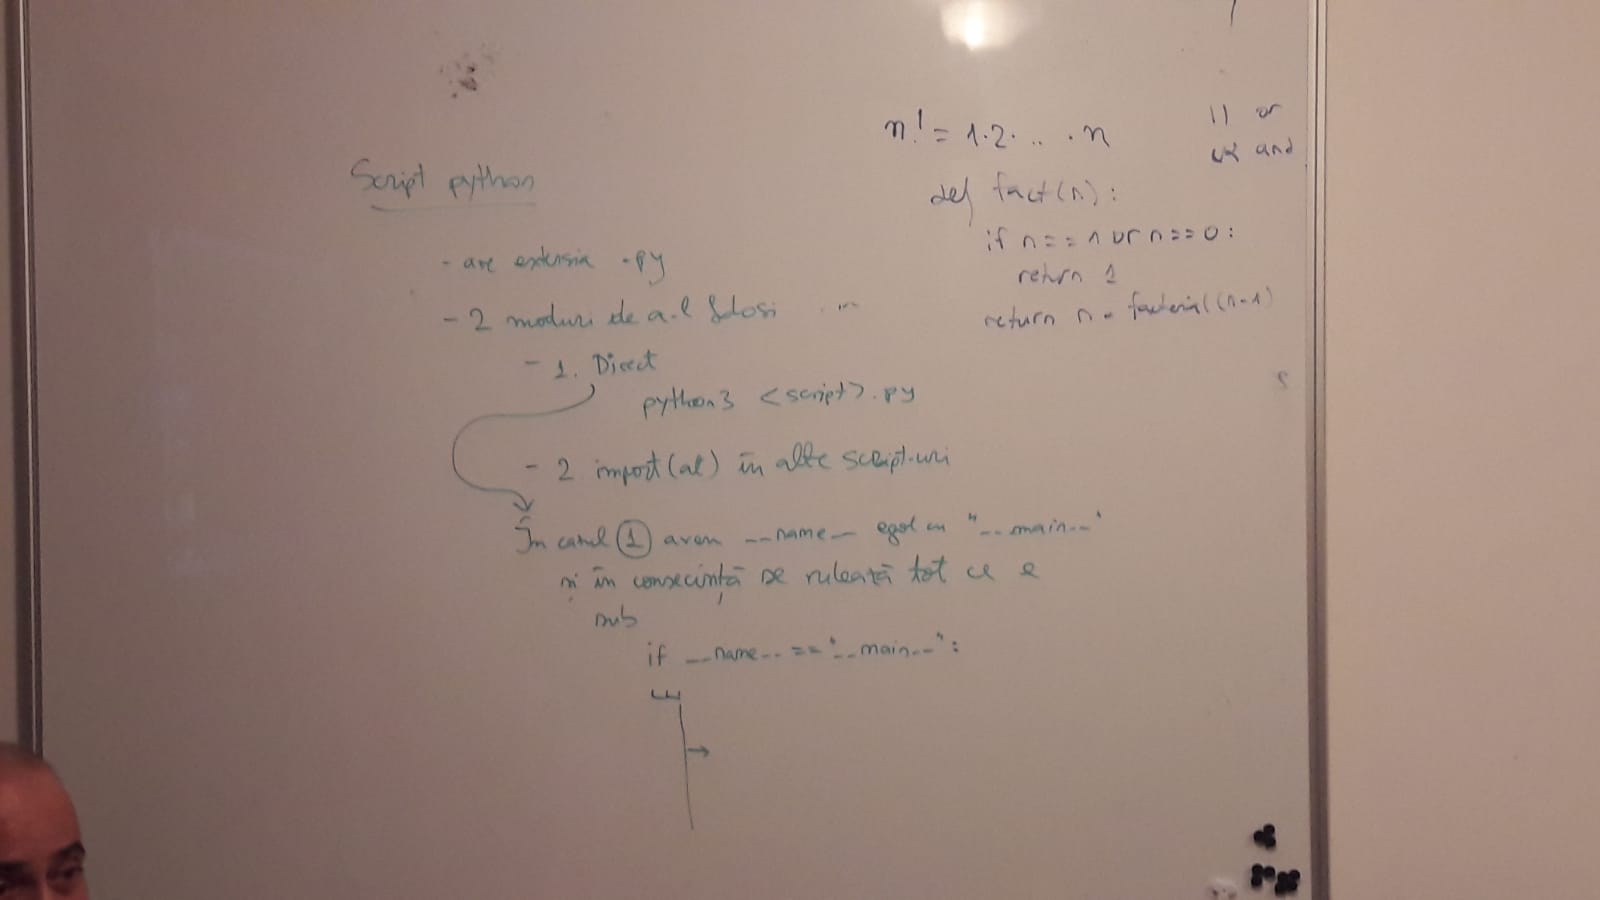 Script python
- are extensia .py
- 2 moduri de a-l folosi
- 1. Direct
python3 <script>.py
- 2 import(at) în alte script-uri
În cazul 1 avem __name__ egal cu "__main__"
și în consecință se rulează tot ce e
sub
if __name__ == "__main__":
n! = 1·2· .. . · n
def fact(n):
if n == 1 or n == 0:
return 1
return n * factorial(n-1)
|| or
&& and